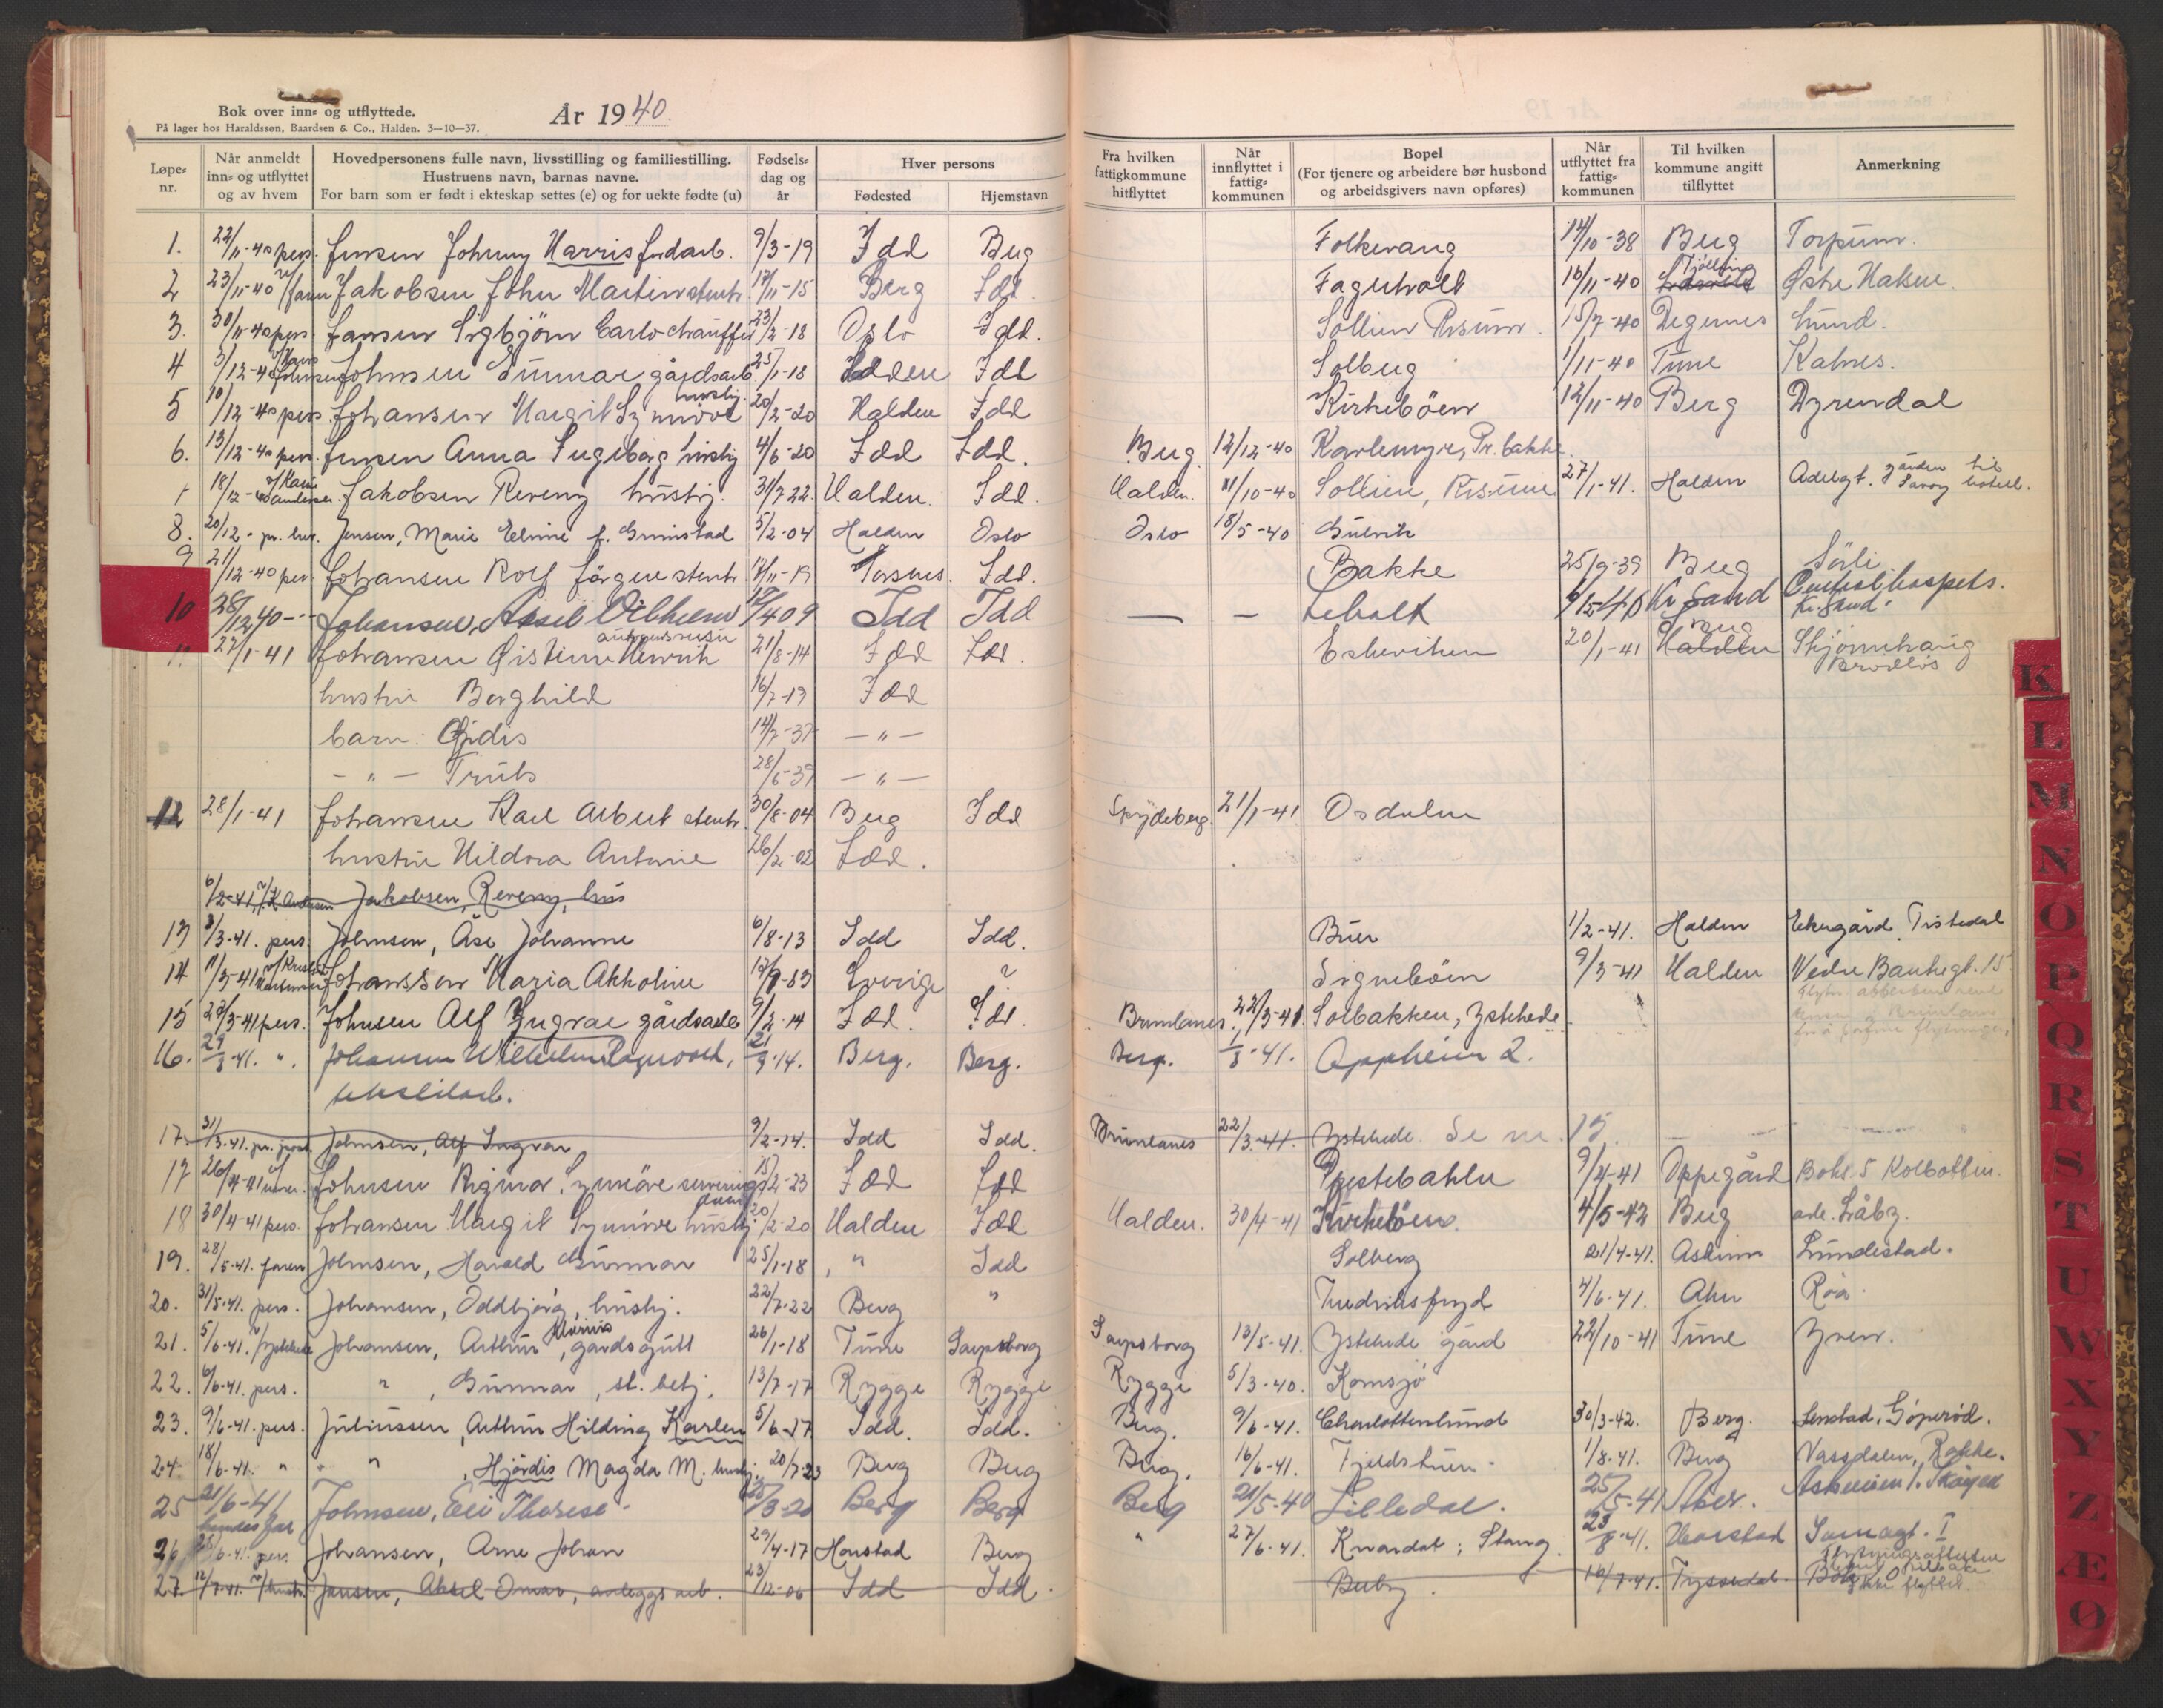 Bok over inn- og utflyttede.
På lager hos Haraldssøn, Baardsen & Co., Halden. 3—10—37.
År 1940.
Løpe-nr. Når anmeldt inn- og utflyttet og av hvem Hovedpersonens fulle navn, livsstilling og familiestilling. Hustruens navn, barnas navne. For barn som er født i ekteskap settes (e) og for uekte fødte (u) Fødsels-dag og år Hver persons Fødested Hjemstavn Fra hvilken fattigkommune hitflyttet Når innflyttet i fattig-kommunen Bopel (For tjenere og arbeidere bør husbond og arbeidsgivers navn opføres) Når utflyttet fra fattig-kommunen Til hvilken kommune angitt tilflyttet Anmerkning
1. 22/11-40 pers. Jensen Johnny Harris 9/3-19 Idd Berg Folkevang 14/10-38 Berg Torpum.
2 23/11-40 Jakobsen John Martin stenh. Berg Idd. Fagerholt 16/11-40 Tjölling Østre Halsen.
3. 30/11-40 pers. Jansen Sigbjörn Carlo chauffør 23/2-18 Oslo Idd. Sollien Risum. 15/7-40 Degernes Lund.
4 3/12-40 Johnsen Gunnar gårdsarb. 25/1-18 Halden Idd Solberg 1/11-40 Tune Kalnes.
5 10/12-40 pers Johansen Margit Synnöve hushj. 20/2-20 Halden Idd Kirkebøen 12/11-40 Berg Dyrendal
6. 13/12-40 pers. Jensen Anna Ingeborg hushj 4/6-20 Idd Idd. Berg. 12/12-40 Karlemyr, Pr. bakke.
7 18/12- Jakobsen Reveny hushj. 31/7 22. Halden. Idd. Halden. 11/10-40 Sollien, Risum 27/1-41. Halden Adelgt. gården til Savoy hotell.
8. 20/12- pr. brev. Jensen, Marie Elvine f. Grimstad 5/2-04 Halden Oslo Oslo 18/5-40
9 21/12-40 pers Johansen Rolf Jörgen stenh. Torsnes. Idd. Bakke 25/9-39 Berg Sörli
10 28/12 40 - - Johansen, Aksel Vilhelm Idd Idd — — Lebolt Kr Sand Centralhospets. Kr. Sand.
11 27/1-41 Johansen Øistein Henrik 21/8-14 Idd Idd. Eskeviken 20/1-41 Berg Halden Skjönnhaug Brödlös
hustru Borghild 16/7-13 Idd
barn: Gjidis 14/7-37 — " —
— " — Truls 28/6-39 — " —
12 28/1-41 Johansen Karl Albert stenh. 30/8-04 Berg Idd Spydeberg. 21/1-41 Osdalen
hustru Hildora Antonie 26/2-02 Idd.
6/2-41, Jakobsen, Reveny, hus
13 8/3-41. pers. Johnsen, Åse Johanne 6/8-13 Idd Idd. Buer 1/2-41. Halden Ekergård Tistedal
14 11/3-41 Johansson Maria Akholine Sverige ? Signebøen 9/3-41 Halden Nedre Bankegt. 15
15 23/3-41 pers. Johnsen Alf Ingvar gårdsarb 9/2-14 Idd. Idd. Brunlanes. 22/3-41. Solbakken, Ystehede
16. 29/8-41. " Johansen Wilhelm 21/9-14. Berg. Berg. Berg. 1/8-41. Oppheim 2.
tekstilarb.
17. 31/3-41. pr. post. Johnsen, Alf Ingvar 9/2-14. Idd Idd. Brunlanes 22/3-41. Ystehede. Se nr. 15.
17 26/4-41 Johnsen Rigmor Synnöve serveringsdame 15/2-23 Idd Idd Prestebakke 9/4-41 Oppegård Boks 5 Kolbotten.
18 30/4-41 pers. Johansen Margit Synnöve hushj. 20/2-20 Halden Idd Halden. 30/4-41 Kirkebøen. 4/5-42 Berg
19. 28/5-41. faren Johnsen, Harald Gunnar 25/1-18 " Idd Solberg 21/4-41. Askim Lundestad.
20. 31/5-41. pers. Johansen, Oddbjörg, hushj. 22/7-22 Berg " Fredriksfryd 4/6-41. Aker Röa.
21. 5/6-41. v/Ystehede Johansen, Arthur Klaris, gårdsgutt 26/1-18 Tune Sarpsborg Sarpsborg 13/5-41. Ystehede gård 22/10-41 Tune Yven.
22. 6/6-41. pers. " , Gunnar, st. betj. 13/7-17 Rygge Rygge Rygge 5/3-40. Kornsjö
23. 9/6-41. pers. Juliussen, Arthur Hilding Karlen 5/6-17 Idd. Idd. Berg. 9/6-41. Charlottenlund 30/3-42. Berg. Lenstad, Göperöd.
24. 18/6-41. " " " , Hjördis Magda M. hushj. 20/7-23 Berg Berg Berg. 16/6-41. Fjeldstuen. 1/8-41. Berg Vassdalen, Rokke.
25 21/6-41 Johnsen, Eli Therese - Berg Berg Berg 21/5-40 Lilledal. 25/5-41 Aker. Askeveien 1. Skøyen
26 6-41. pers. Johansen, Arne Johan 29/4-17 Harstad Berg " 27/6-41. Knardal; Stang. 23/8-41. Harstad
27. 12/7-41. Jansen, Aksel Omar, anleggsarb. 23/12-06 Idd Idd. Buby. 16/7-41. Tyssedal
Flytningsattesten
ikke flyttet.
K
L
M
N
O
P
Q
R
S
T
U
W
X
Y
Z
Æ
Ø